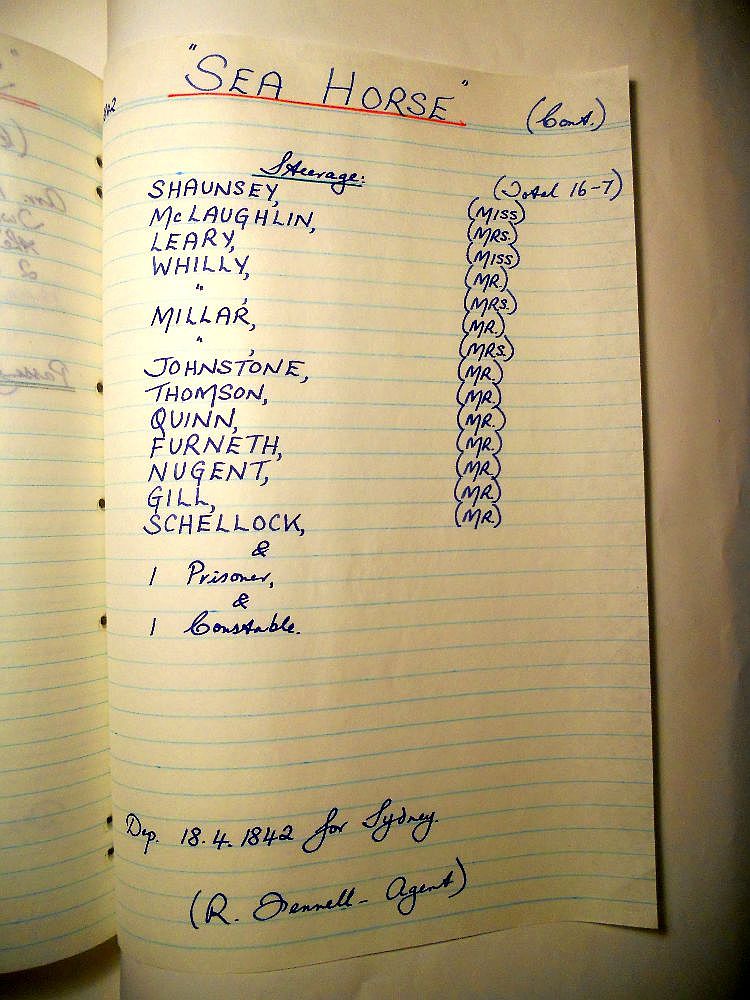 "SEA HORSE" (Cont.)
Steerage:
SHAUNSEY, (Total 16-7)
McLAUGHLIN, (MISS)
LEARY, (MRS.)
WHILLY, (MISS)
" , (MR.)
MILLAR, (MRS.)
" , (MR.)
JOHNSTONE, (MRS.)
THOMSON, (MR.)
QUINN, (MR.)
FURNETH, (MR.)
NUGENT, (MR.)
GILL, (MR.)
SCHELLOCK, (MR.)
(MR.)
&
1 Prisoner,
&
1 Constable.
Dep. 18.4.1842 for Sydney.
(R. Fennell - Agent)